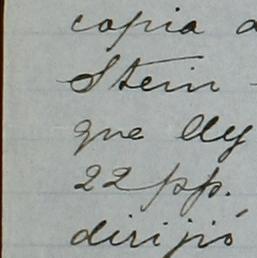 copia a
Stein -
que Uy
22 pp.
dirijió